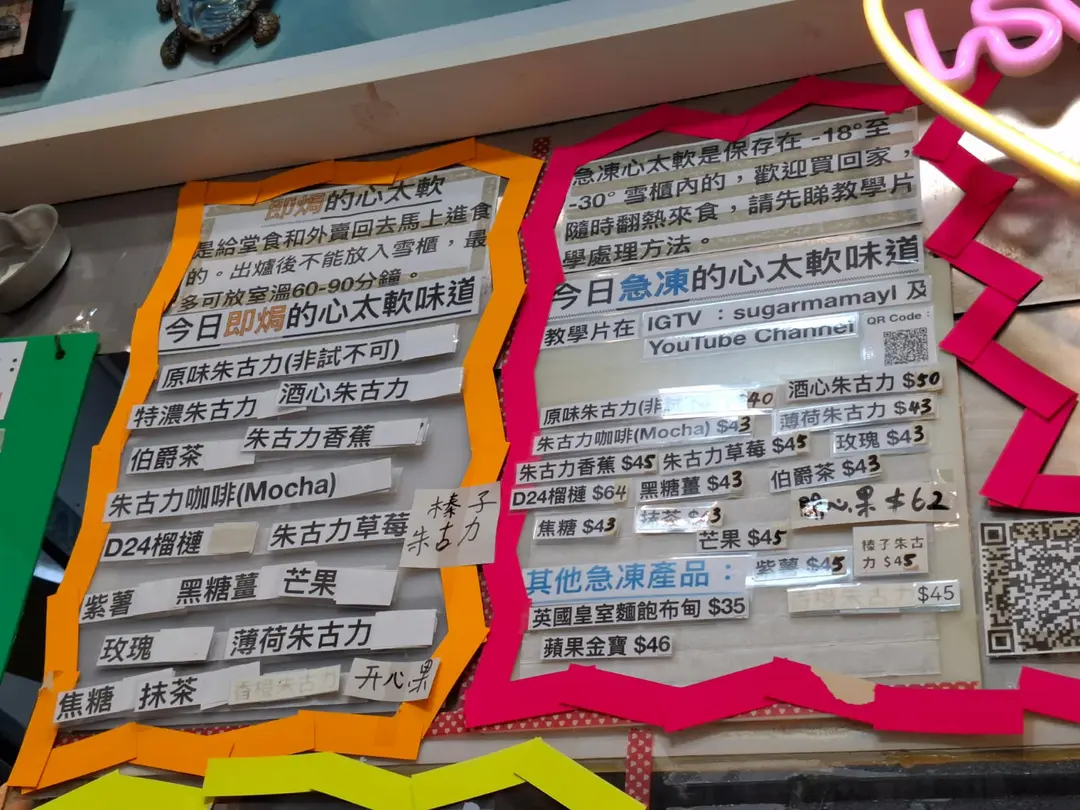 即焗的心太軟
是給堂食和外賣回去馬上進食
的。出爐後不能放入雪櫃，最
多可放室溫60-90分鐘。
今日即焗的心太軟味道
原味朱古力(非試不可)
特濃朱古力 酒心朱古力
伯爵茶 朱古力香蕉
朱古力咖啡(Mocha)
D24榴槤 朱古力草莓
榛子
朱古力
紫薯 黑糖薑 芒果
玫瑰 薄荷朱古力
焦糖 抹茶 香橙朱古力 开心果
急凍心太軟是保存在 -18°至
-30° 雪櫃內的，歡迎買回家，
隨時翻熱來食，請先睇教學片
學處理方法。
今日急凍的心太軟味道
教學片在 IGTV : sugarmamayl 及
YouTube Channel
QR Code :
原味朱古力(非 40 酒心朱古力 $50
朱古力咖啡(Mocha) $43 薄荷朱古力 $43
朱古力香蕉 $45 朱古力草莓 $45 玫瑰 $43
D24榴槤 $64 黑糖薑 $43 伯爵茶 $43
焦糖 $43 抹茶 $43 開心果 $62
芒果 $45 榛子朱古
力 $45
其他急凍產品： 紫薯 $45
英國皇室麵飽布甸 $35 $45
蘋果金寶 $46